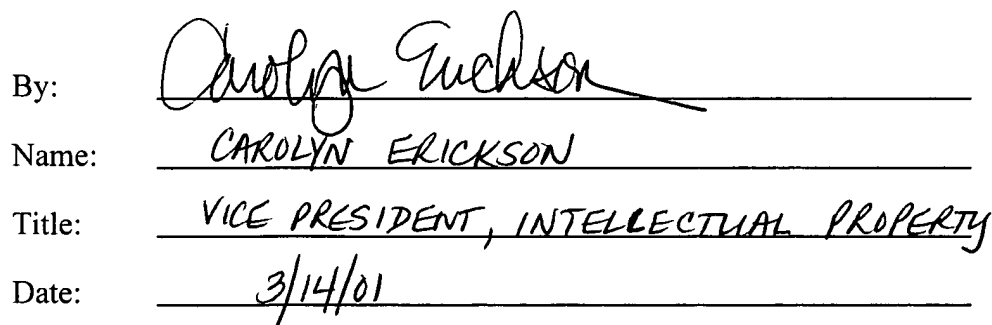 By: Carolyn Erickson
Name: CAROLYN ERICKSON
Title: VICE PRESIDENT, INTELLECTUAL PROPERTY
Date: 3/14/01